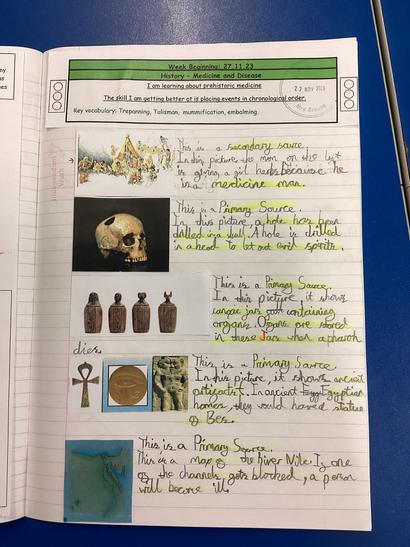 Week Beginning: 27.11.23
History – Medicine and Disease
I am learning about prehistoric medicine
The skill I am getting better at is placing events in chronological order.
Key vocabulary: Trepanning, Talisman, mummification, embalming.
27 NOV 2023
This is a secondary source.
In this picture the man on the left
is giving a girl herbs because he
is a medicine man.
This is a Primary Source.
In this picture a hole has been
drilled in a skull. A hole is drilled
in a head to let out evil spirits.
This is a Primary Source.
In this picture, it shows
canopic jars containing
organs. Organs are stored
in these Jars when a pharoh
dies.
This is a Primary Source
In this picture, it shows ancient
artifacts. In ancient Egyptian
homes they would haved statue
of Bes.
This is a Primary Source.
This is a map of the River Nile. If one
of the channels gets blocked, a person
will become ill.